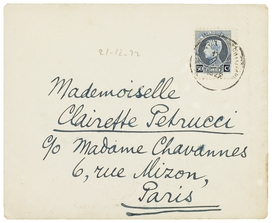 21-12-22
Mademoiselle
Clairette Petrucci
c/o Madame Chavannes
6, rue Mizon,
Paris